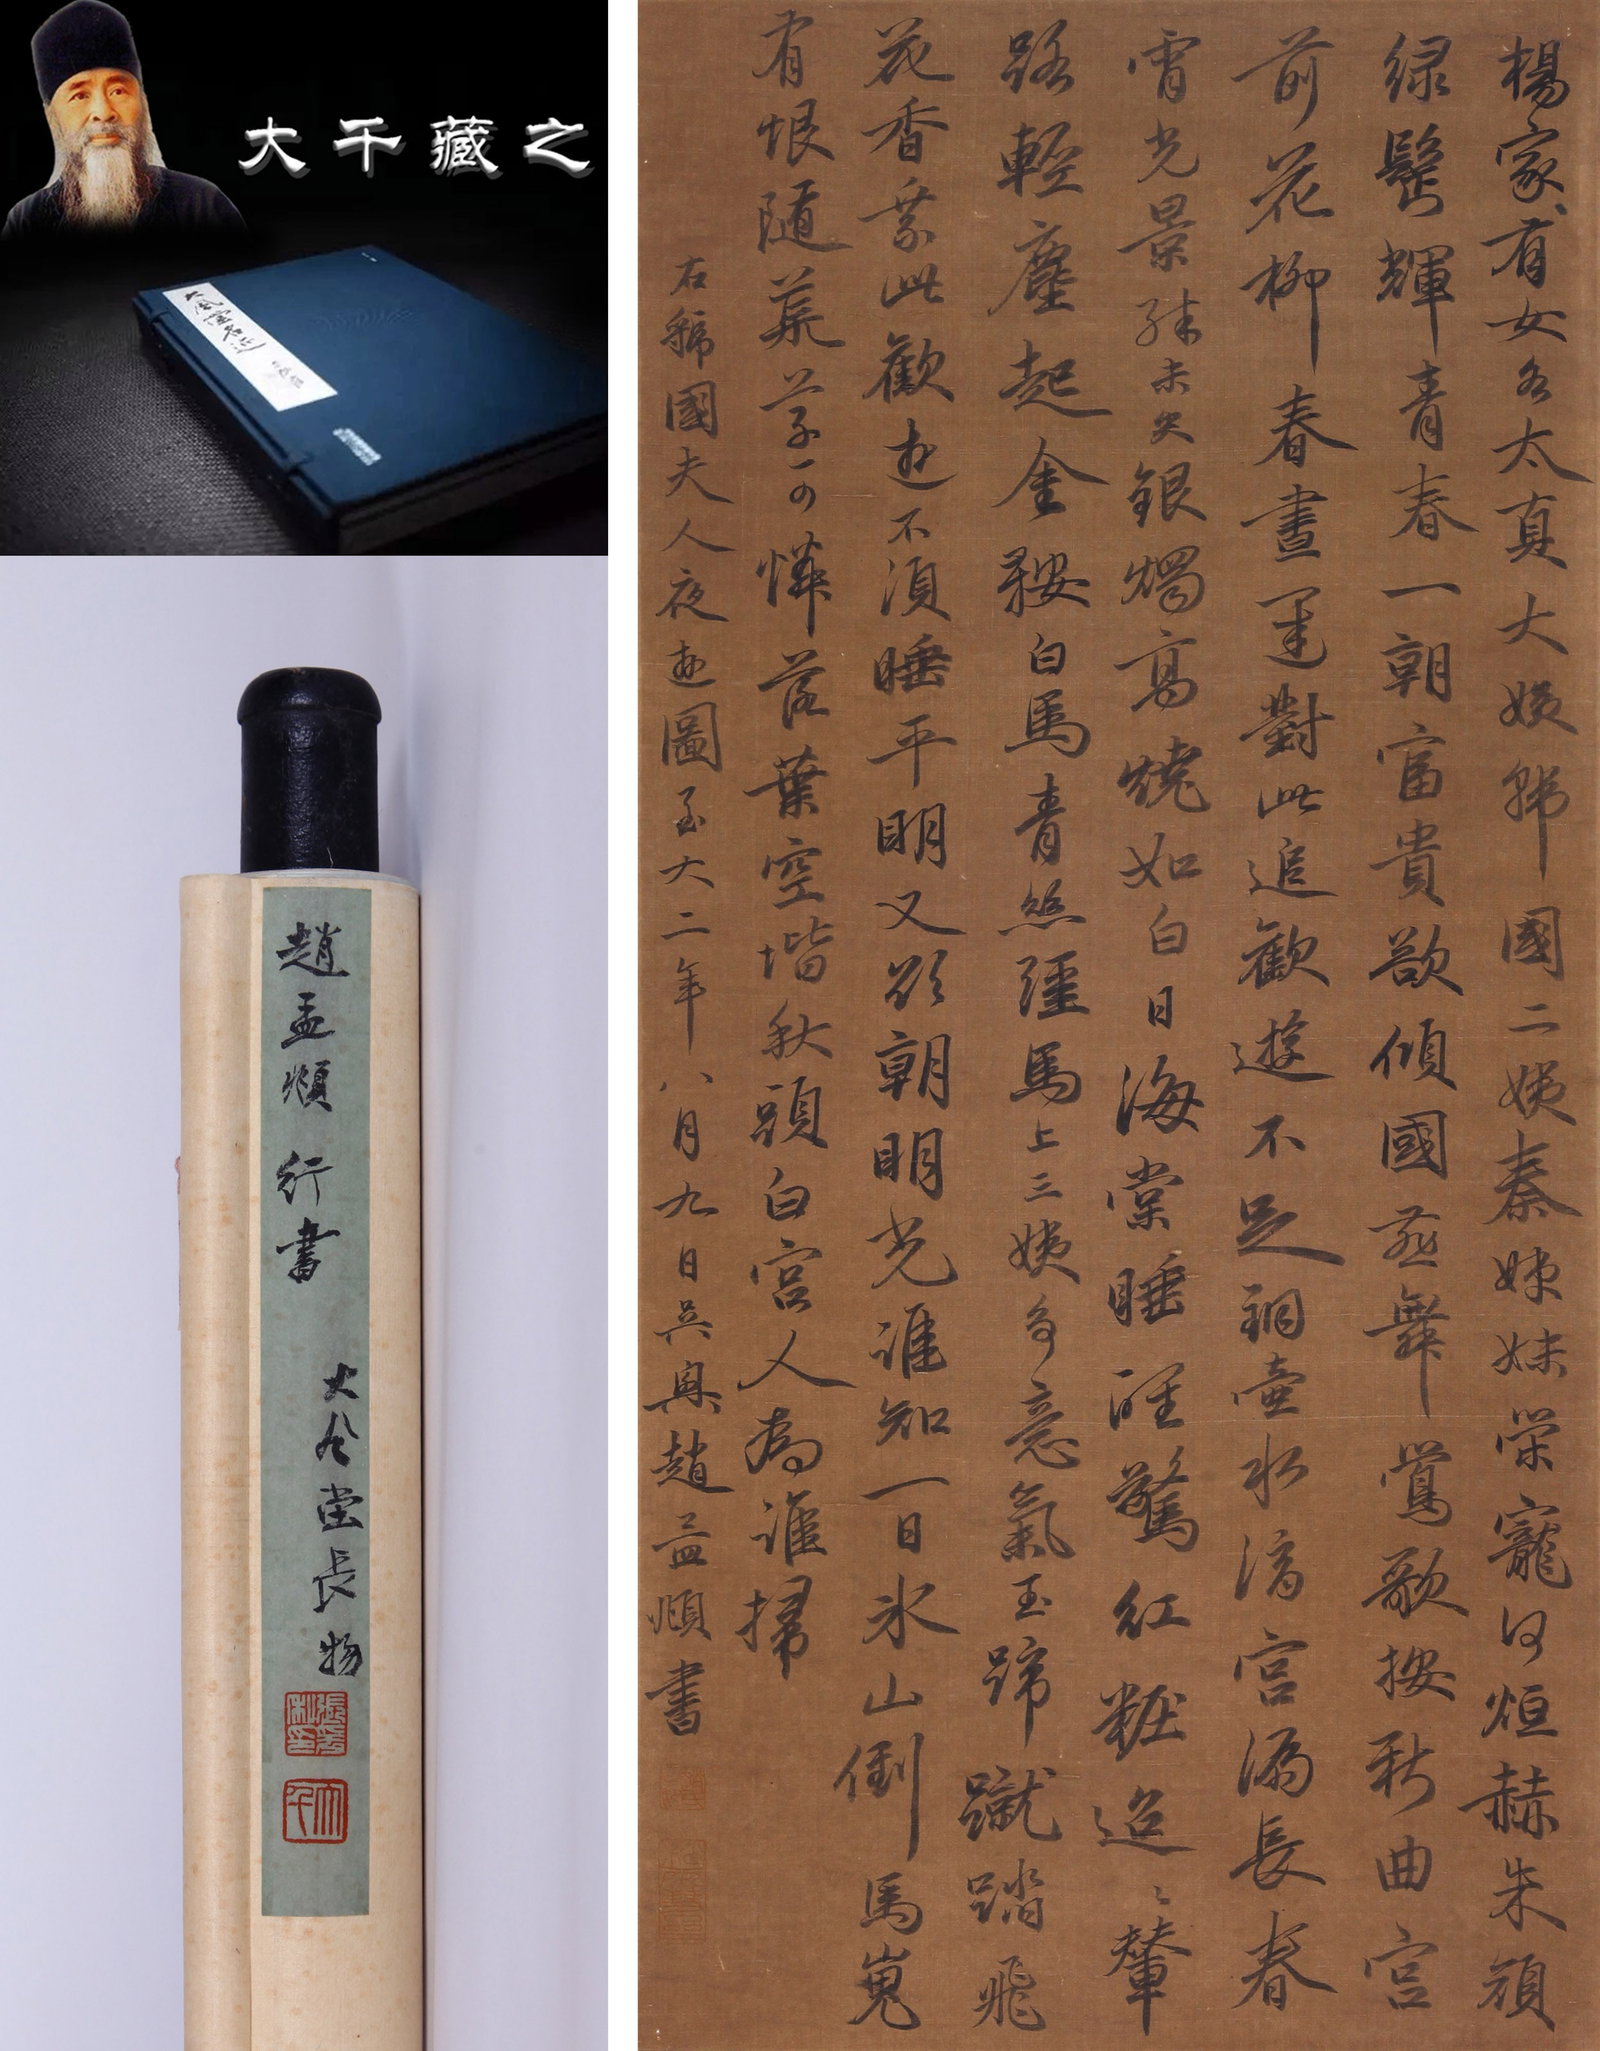 大千藏之
大風堂名迹
趙孟頫 行書
大風堂長物
楊家有女名太真大姨韓國二姨秦姊妹榮寵何烜赫朱顏
綠鬢輝青春一朝富貴欲傾國燕舞鶯歌按新曲宮
前花柳春晝遲對此追歡遊不足銅壺水滴宮漏長春
宵光景殊未央銀燭高燒如白日海棠睡醒驚紅粧迢々輦
路輕塵起金鞍白馬青絲韁馬上三姨多意氣玉蹄蹴踏飛
花香乘此歡遊不須睡平明又欲朝明光誰知一日氷山倒馬嵬
有恨隨荒草可憐落葉空堦秋頭白宮人為誰掃
右虢國夫人夜遊圖至大二年八月九日吳興趙孟頫書